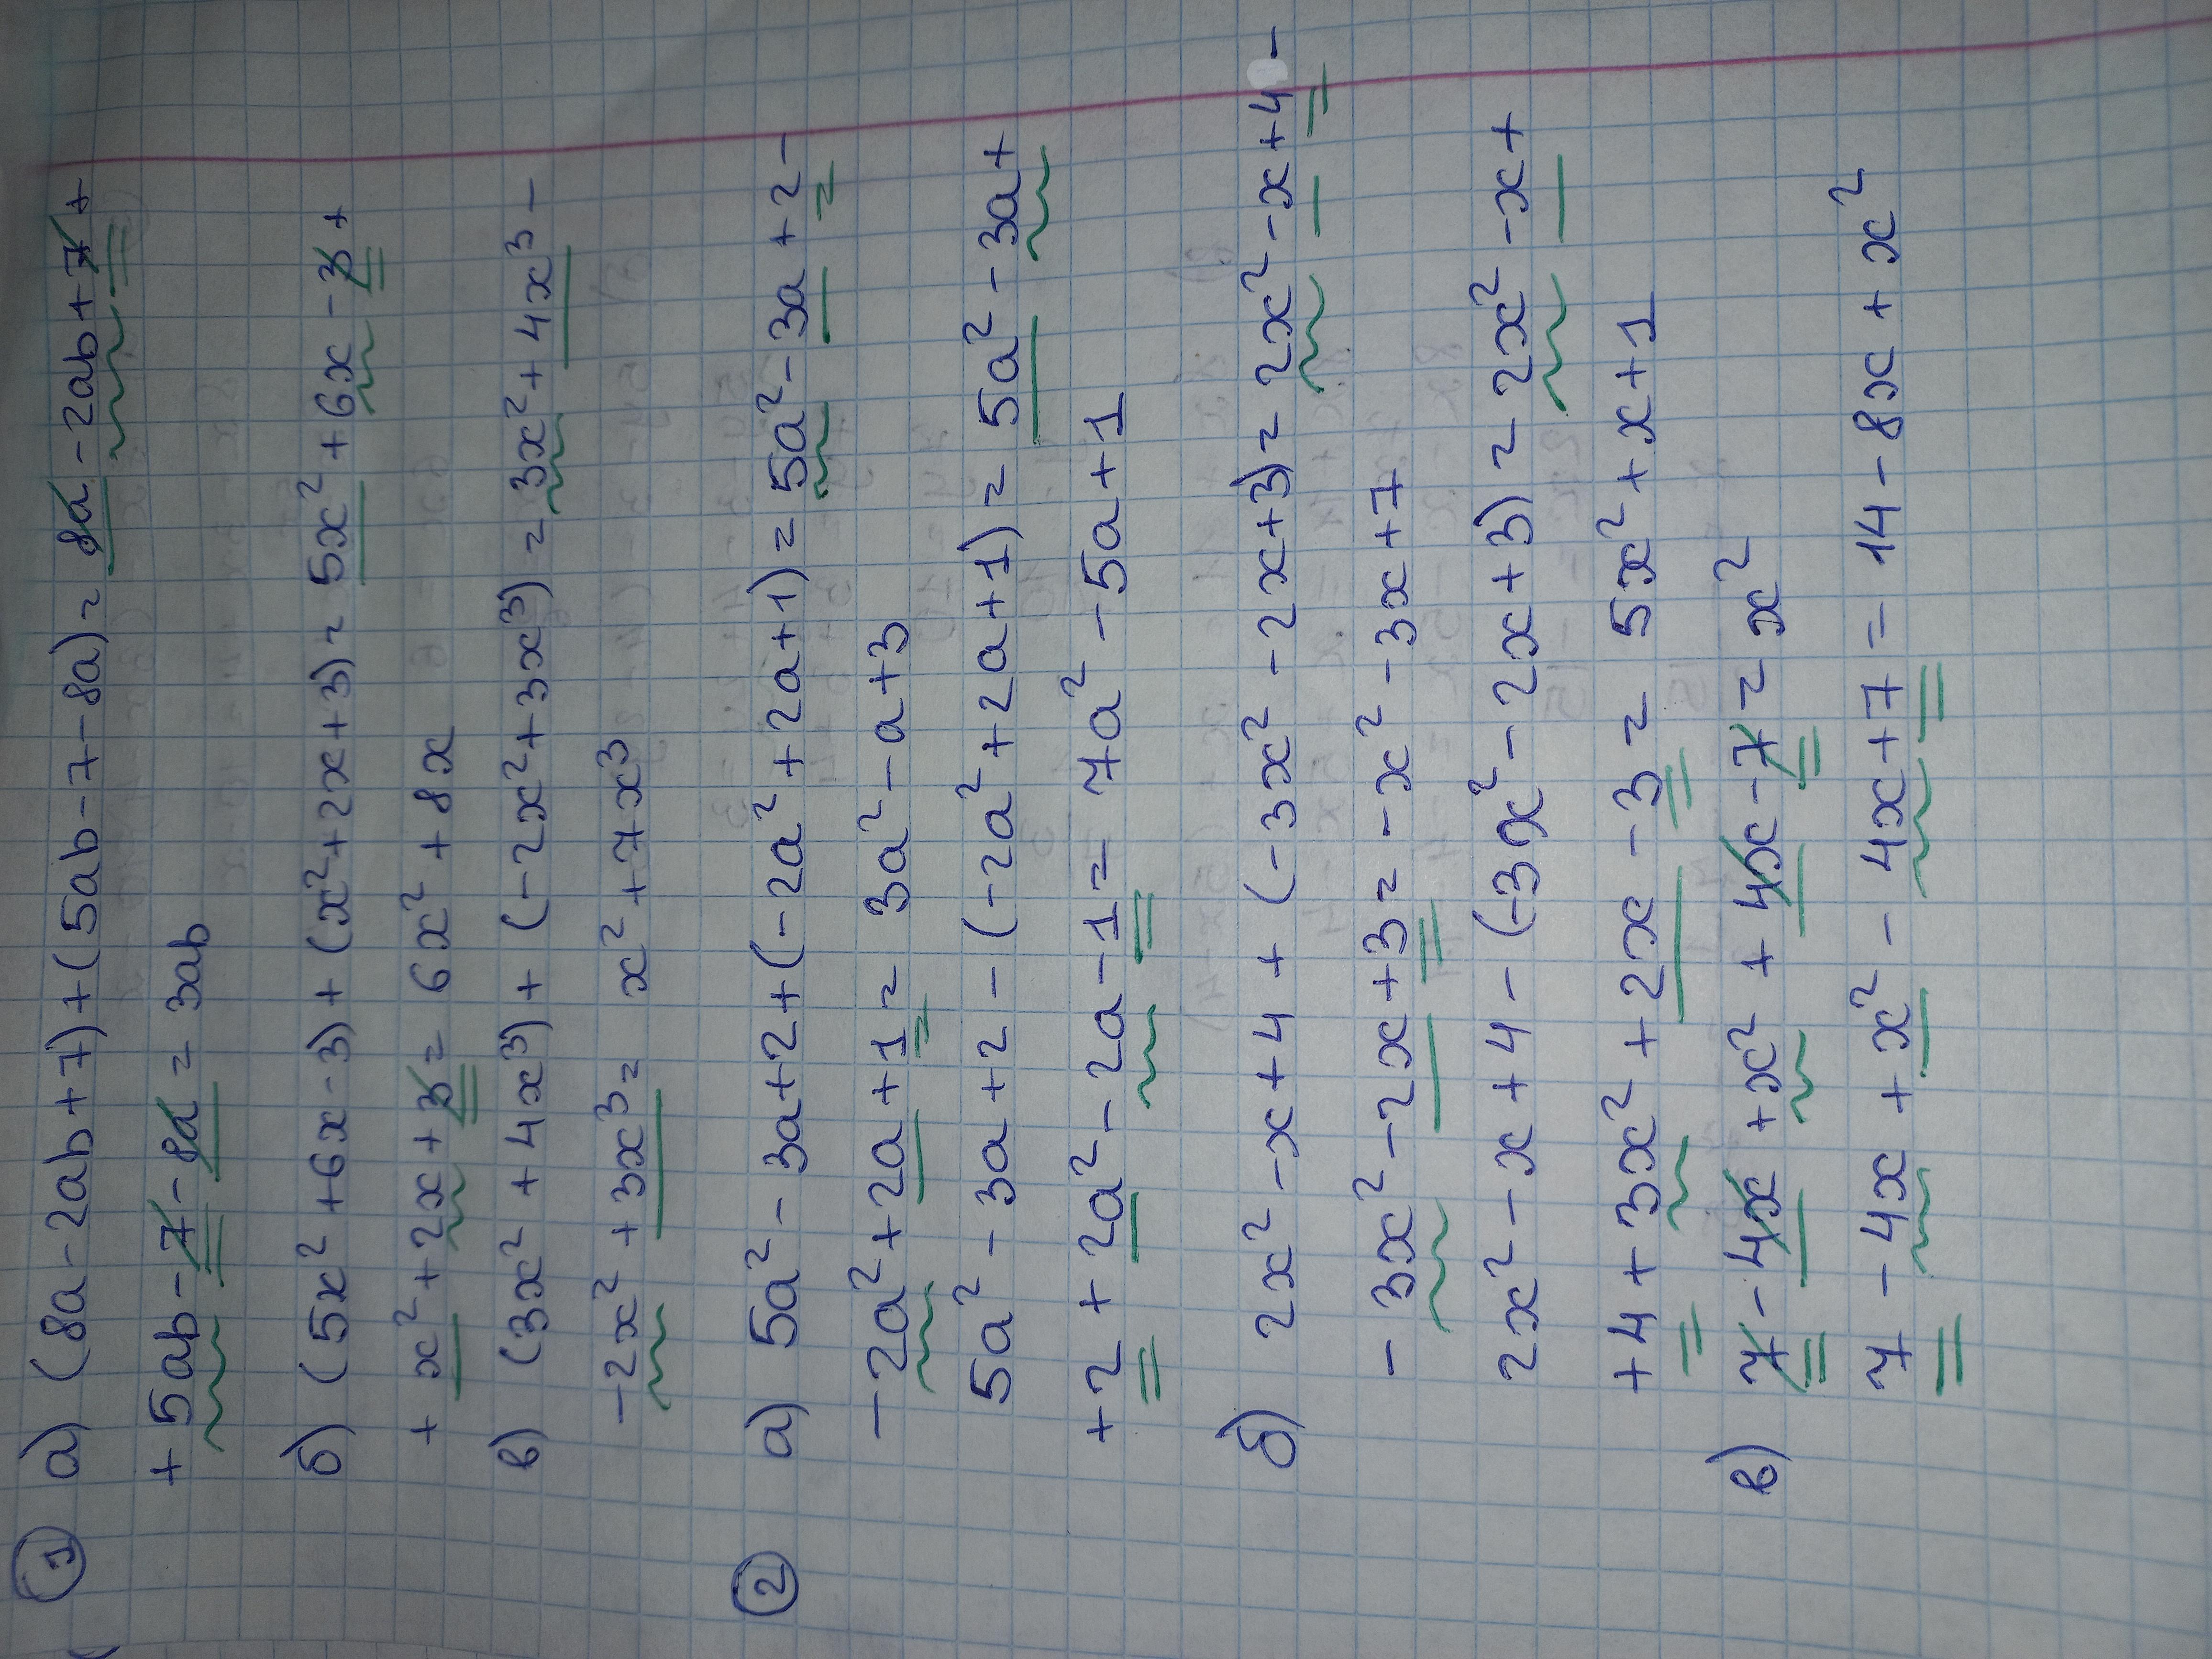 ① а) (8a-2ab+7)+(5ab-7-8a)= 8a-2ab+7+
+5ab-7-8a= 3ab
б) (5x²+6x-3)+(x²+2x+3)= 5x²+6x-3+
+x²+2x+3= 6x²+8x
в) (3x²+4x³)+(-2x²+3x³)= 3x²+4x³-
-2x²+3x³= x²+7x³
② а) 5a²-3a+2+(-2a²+2a+1)= 5a²-3a+2-
-2a²+2a+1= 3a²-a+3
5a²-3a+2-(-2a²+2a+1)= 5a²-3a+
+2+2a²-2a-1= 7a²-5a+1
б) 2x²-x+4+(-3x²-2x+3)= 2x²-x+4-
-3x²-2x+3= -x²-3x+7
2x²-x+4-(-3x²-2x+3)= 2x²-x+
+4+3x²+2x-3= 5x²+x+1
в) 7-4x+x²+4x-7= x²
7-4x+x²-4x+7= 14-8x+x²